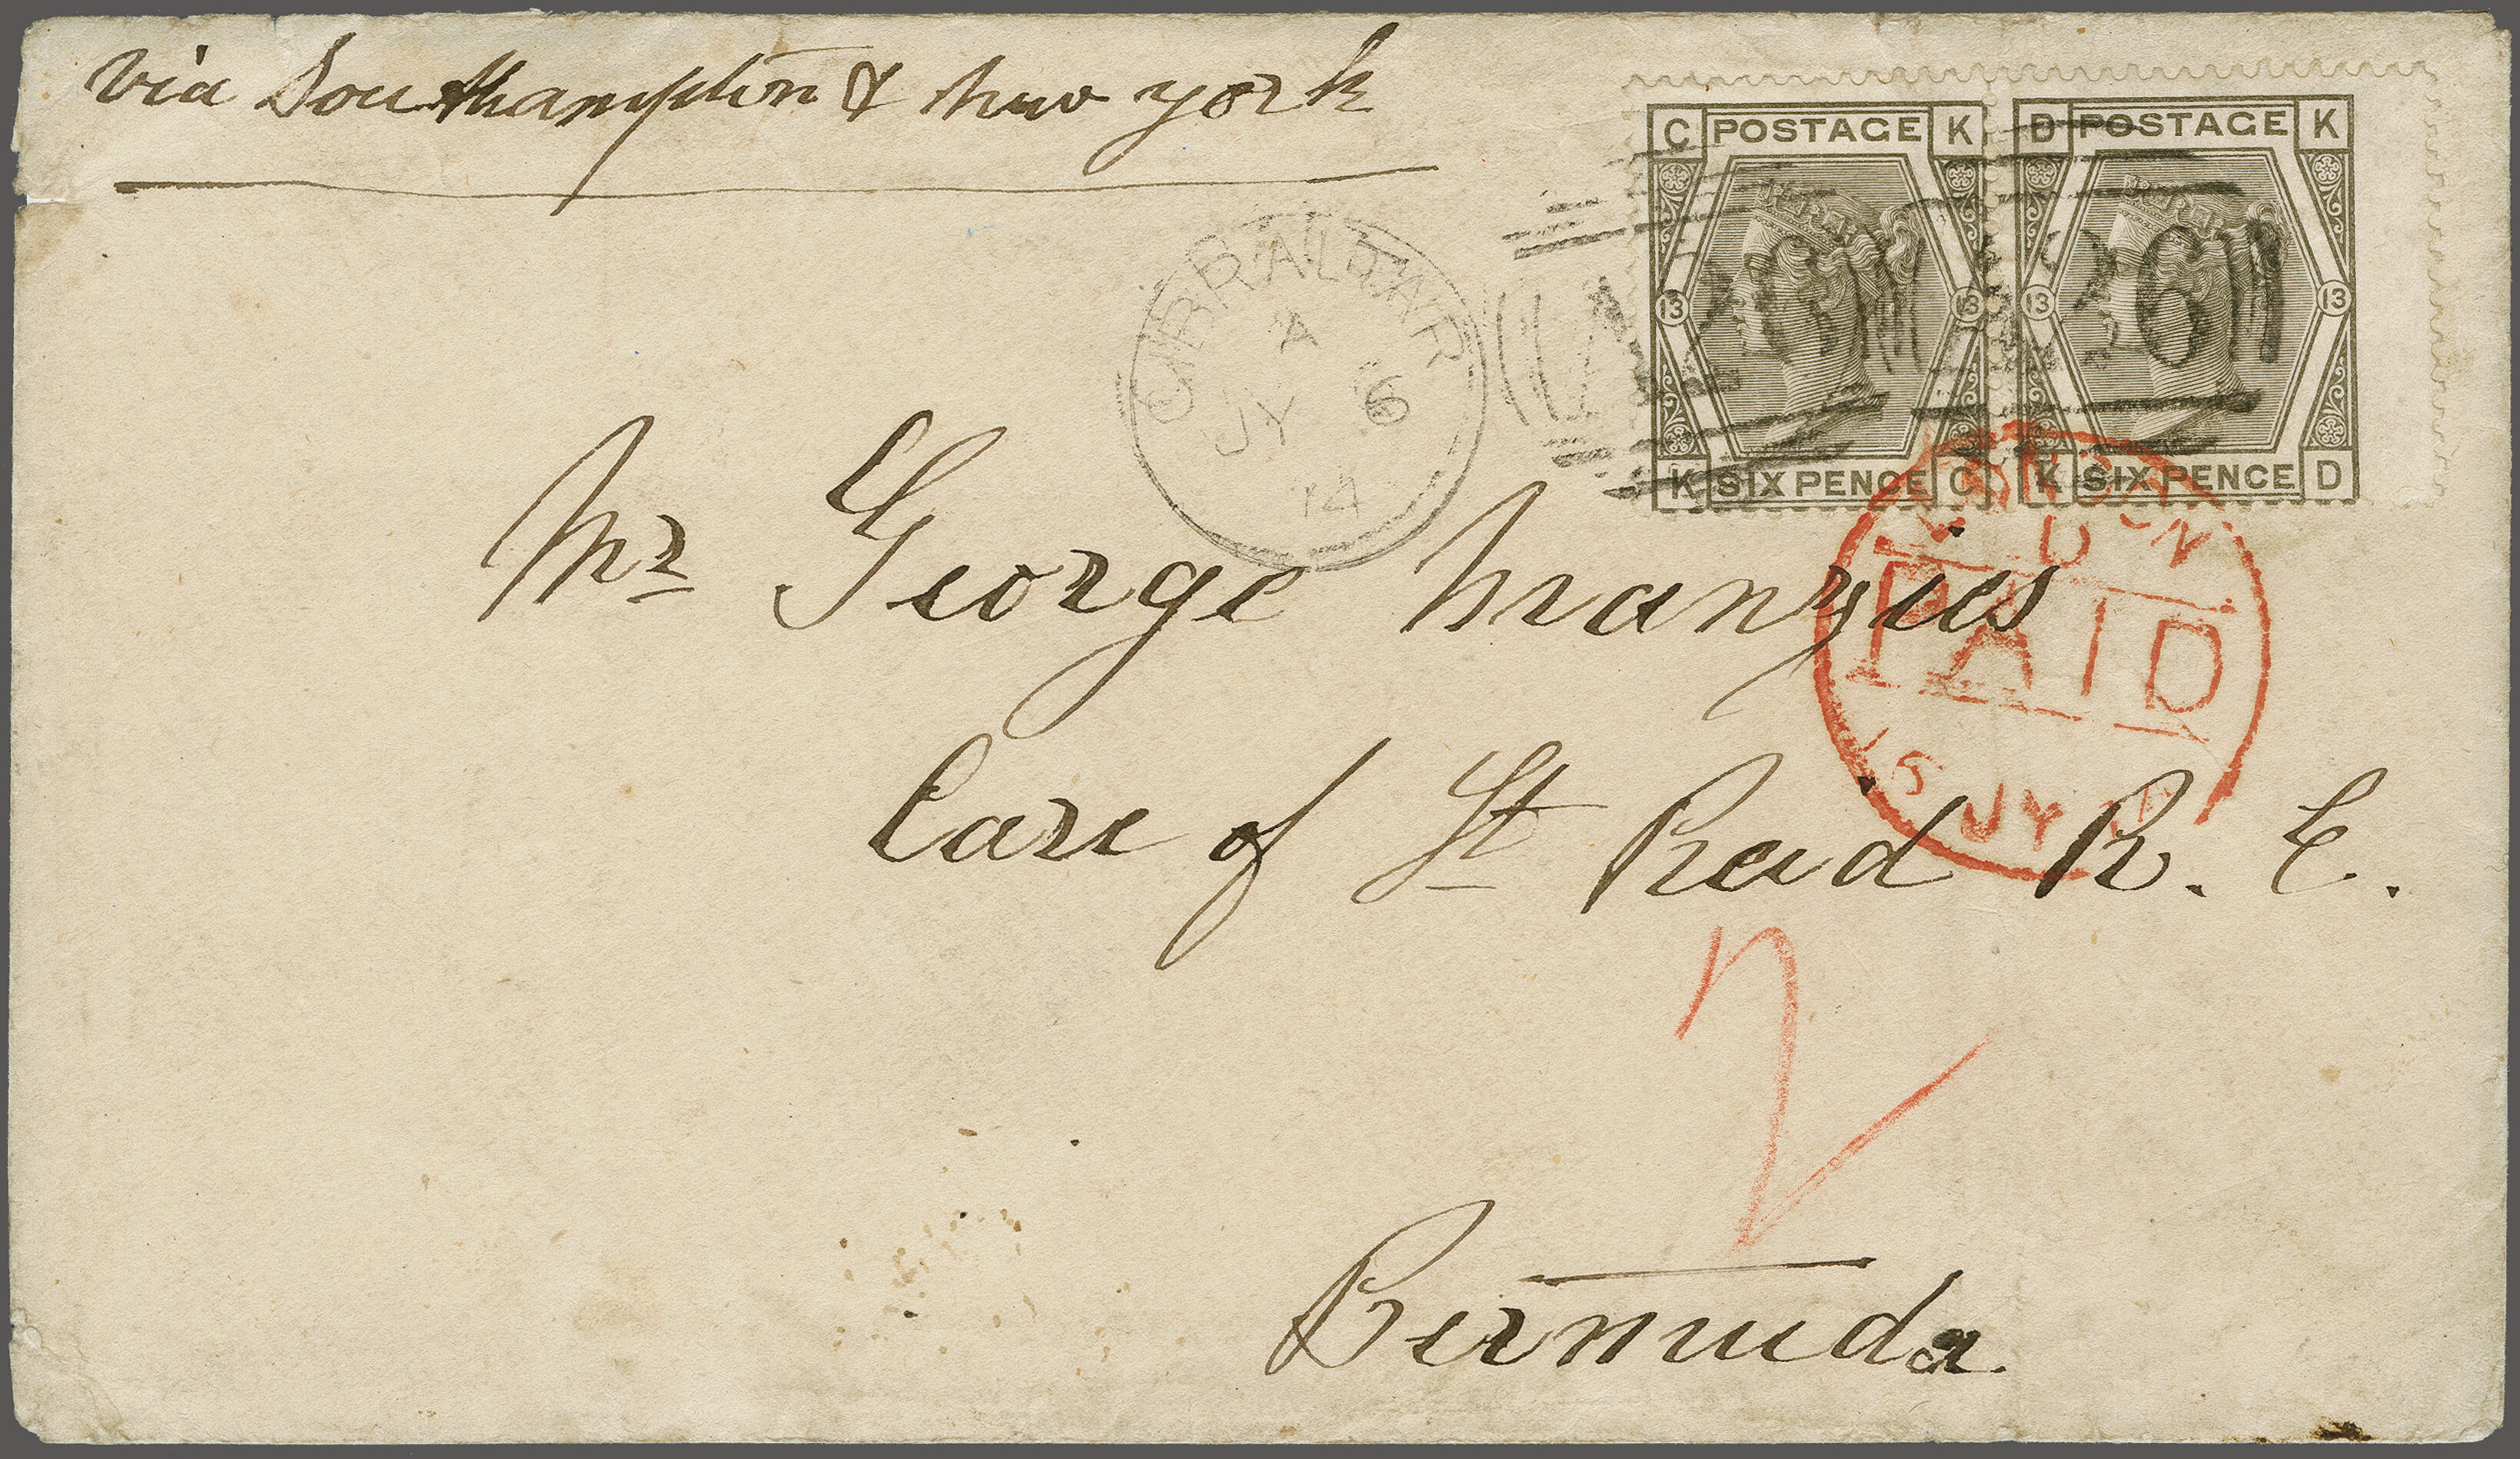 via Southampton & New York
C POSTAGE K
D POSTAGE K
13 13
13 13
K SIX PENCE C
K SIX PENCE D
A26
GIBRALTAR
A
JY 6
74
LONDON
PAID
15 JY
Mr George Manzies
Care of St Reid R. E.
2
Bermuda